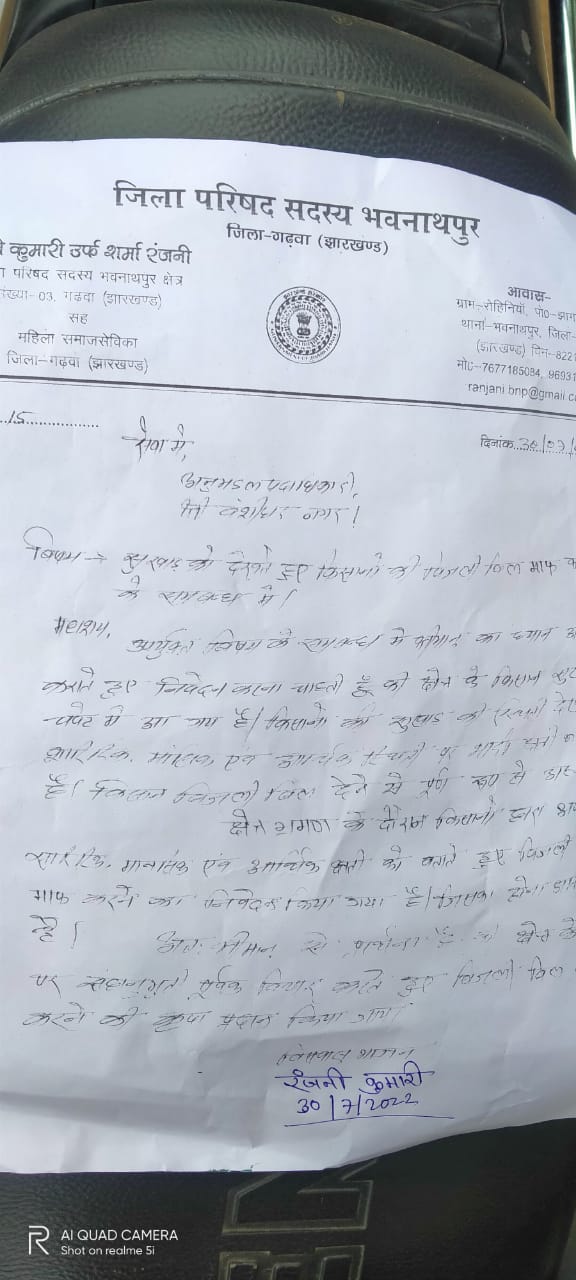 जिला परिषद सदस्य भवनाथपुर
जिला-गढ़वा (झारखण्ड)
कुमारी उर्फ शर्मा रंजनी
परिषद सदस्य भवनाथपुर क्षेत्र
संख्या-03, गढ़वा (झारखण्ड)
सह
महिला समाजसेविका
जिला-गढ़वा (झारखण्ड)
आवास-
ग्राम-रोहिनियाँ, पो०-झाग
थाना-भवनाथपुर, जिला-
(झारखण्ड) पिन-8221
मो०-7677185084, 96931
ranjani.bnp@gmail.co
15
दिनांक 30/07/
सेवा में,
अनुमंडल पदाधिकारी,
श्री वंशीधर नगर।
विषय → सुखाड़ को देखते हुए किसानों की बिजली बिल माफ
के सम्बन्ध में।
महाशय,
उपर्युक्त विषय के सम्बन्ध में श्रीमान् का ध्यान
कराते हुए निवेदन करना चाहती हूँ की क्षेत्र के किसान
चपेट में आ गय है। किसानों की सुखाड़ की स्थिती
शारिरिक, मानसिक एवं आर्थिक स्थिती पर भारी
है। किसान बिजली बिल देने से पूर्ण रूप से
क्षेत्र भ्रमण के दौरान किसानों द्वारा
शारिरिक, मानसिक एवं आर्थिक क्षती को बताते हुए बिजली
माफ करने का निवेदन किया गया है। जिसका होना
है।
अतः श्रीमान् से प्रार्थना है की क्षेत्र के
पर सहानुभूती पूर्वक विचार करते हुए बिजली बिल
करने की कृपा प्रदान किया जाय।
रंजनी कुमारी
30/7/2022
AI QUAD CAMERA
Shot on realme 5i